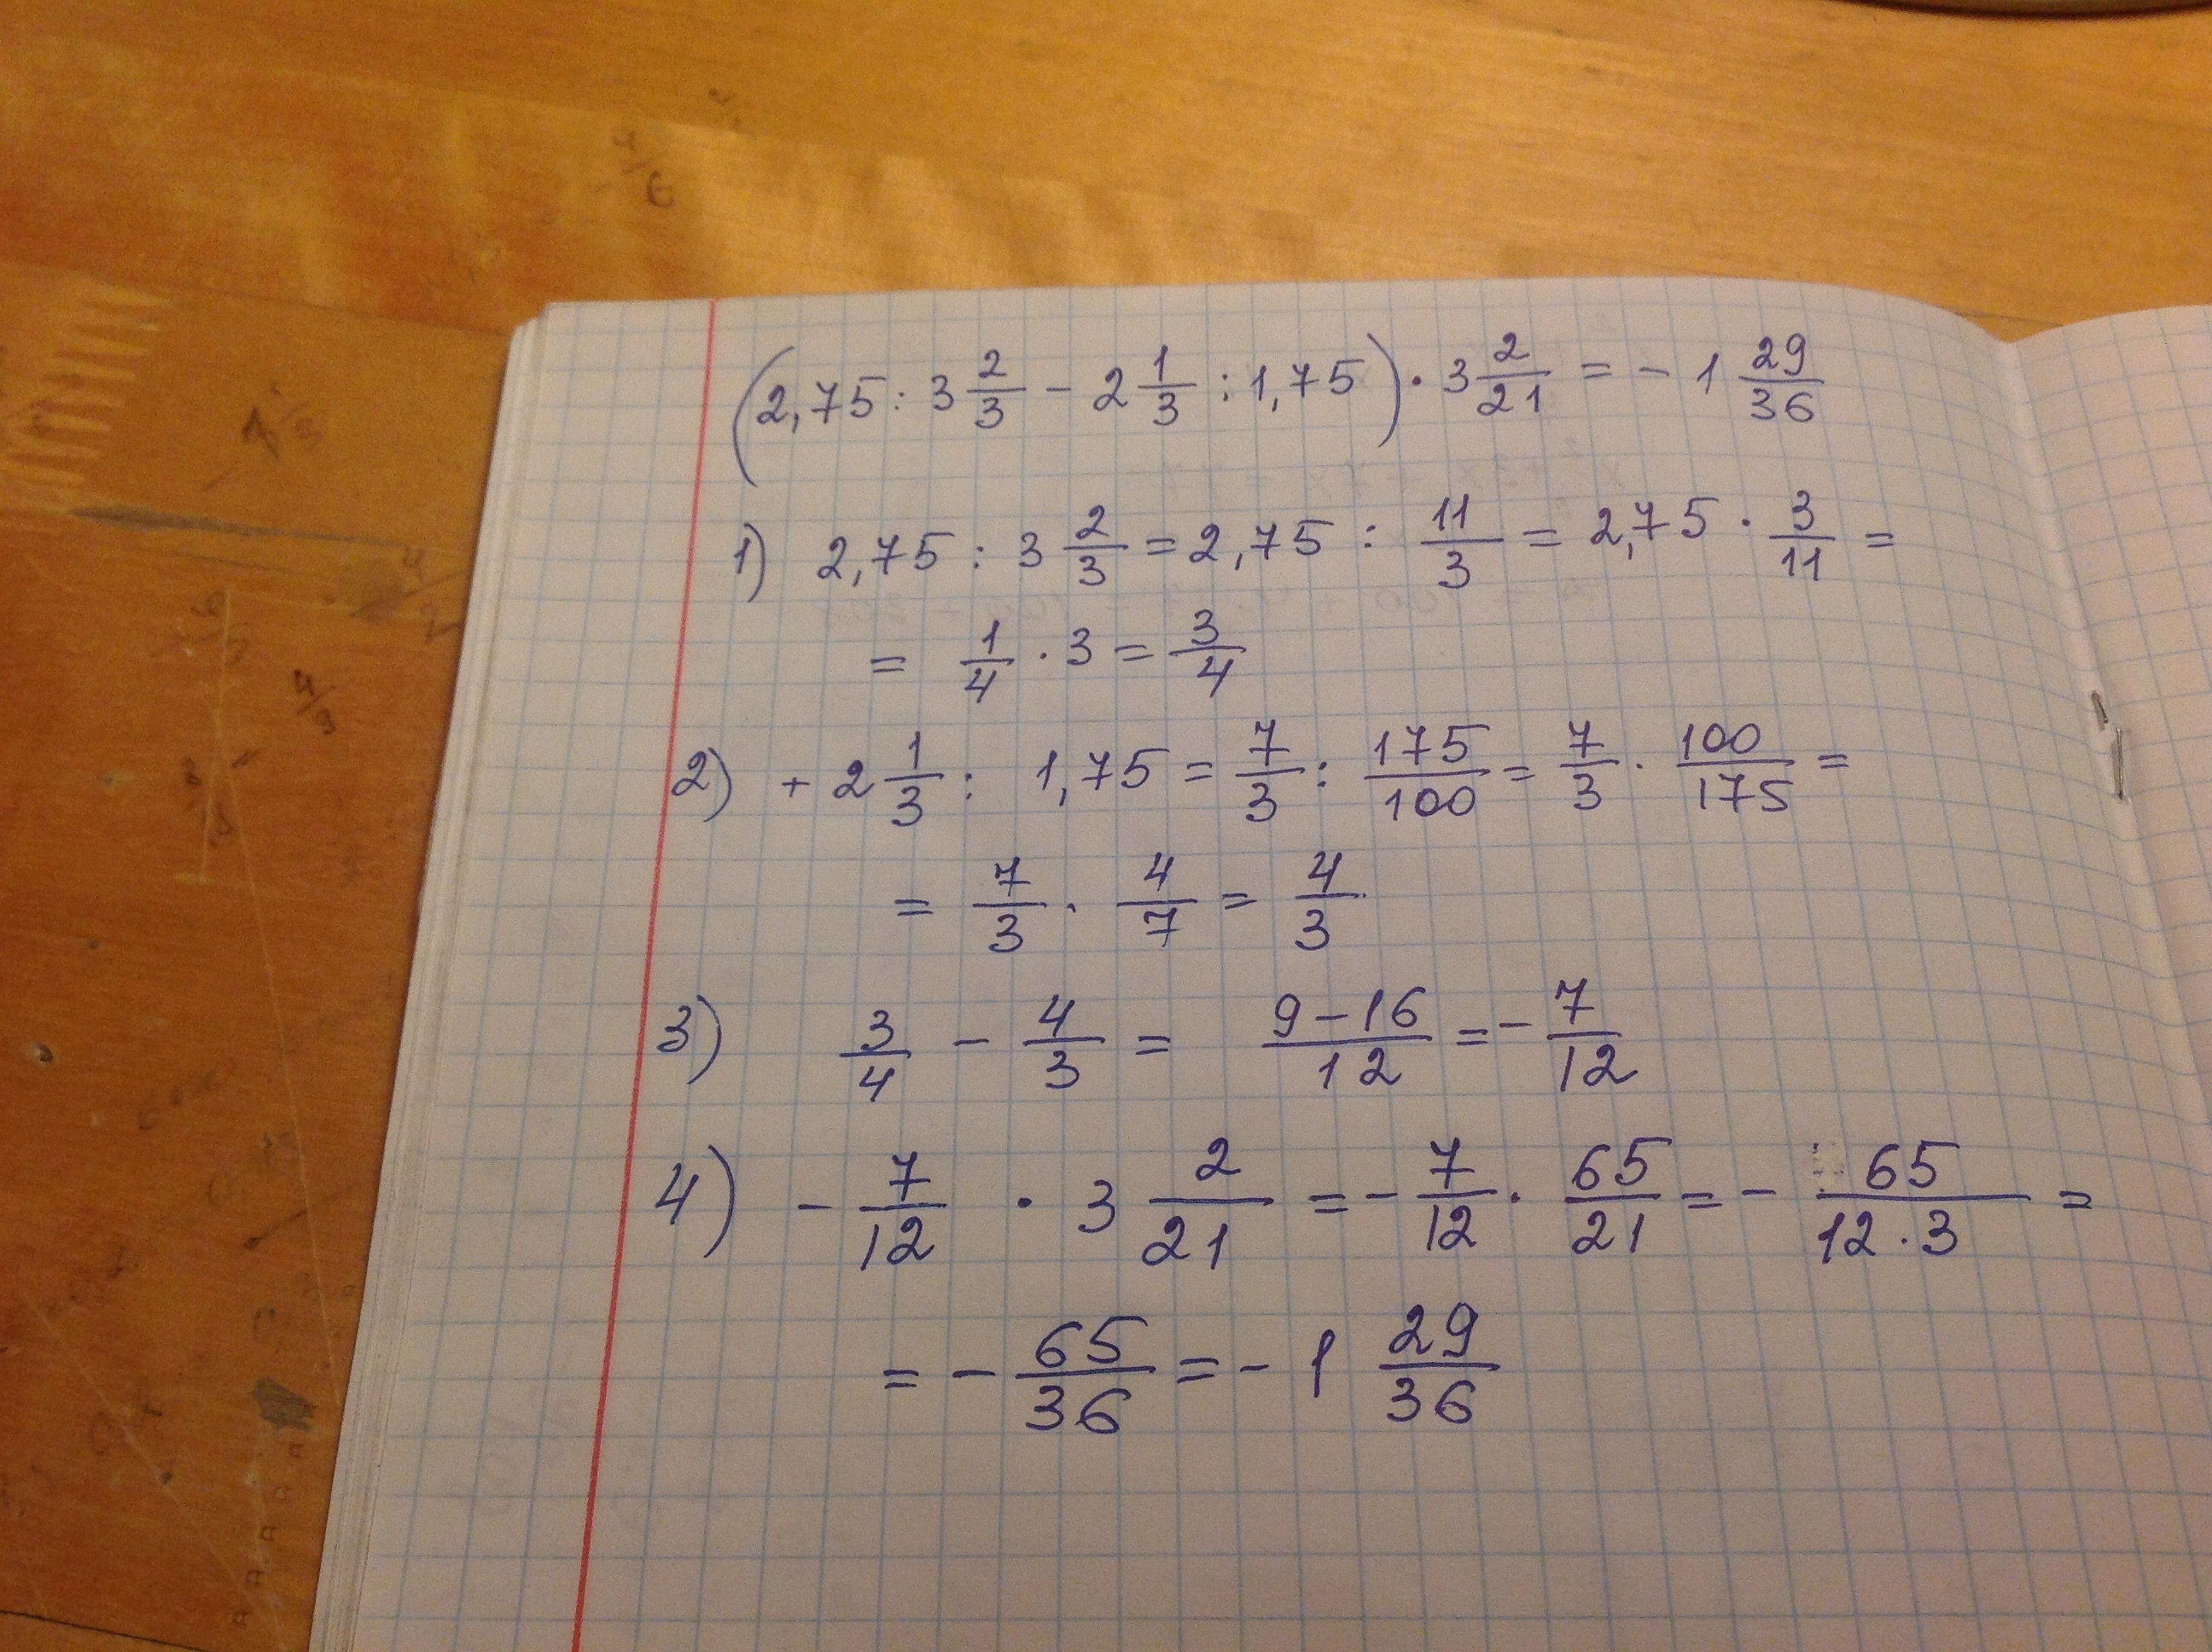 (2,75 : 3 2/3 - 2 1/3 : 1,75) · 3 2/21 = - 1 29/36
1) 2,75 : 3 2/3 = 2,75 : 11/3 = 2,75 · 3/11 =
= 1/4 · 3 = 3/4
2) + 2 1/3 : 1,75 = 7/3 : 175/100 = 7/3 · 100/175 =
= 7/3 · 4/7 = 4/3
3) 3/4 - 4/3 = 9-16/12 = - 7/12
4) - 7/12 · 3 2/21 = - 7/12 · 65/21 = - 65/12·3 =
= - 65/36 = - 1 29/36